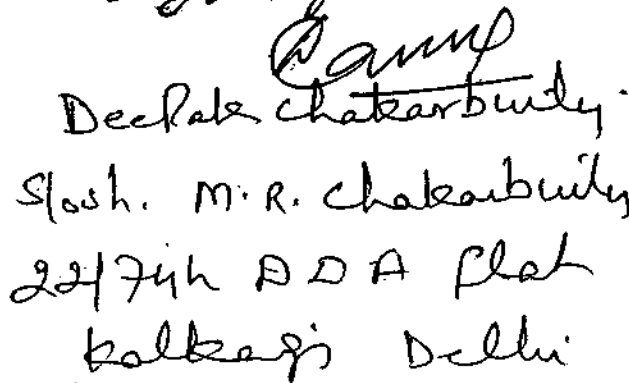 Deepak Chakarburty.
S/o sh. M.R. Chakarburty
22/74h DDA flat
Kalkaji Delhi